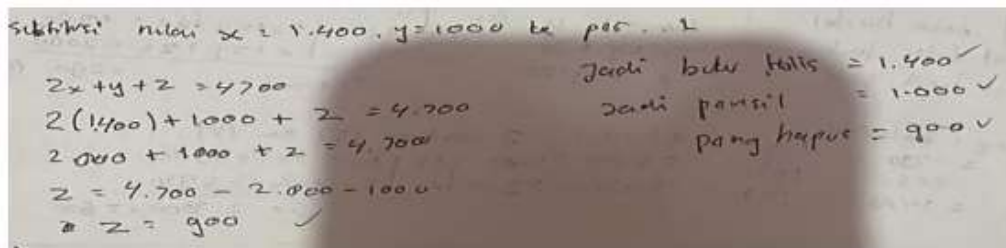 substitusi nilai x = 1.400, y = 1000 ke per...1
2x + y + z = 4700
2(1.400) + 1000 + z = 4.700
2000 + 1000 + z = 4.700
z = 4.700 - 2.000 - 1000
z = 900 ✓
Jadi buku tulis = 1.400 ✓
Jadi pensil = 1.000 ✓
penghapus = 900 ✓